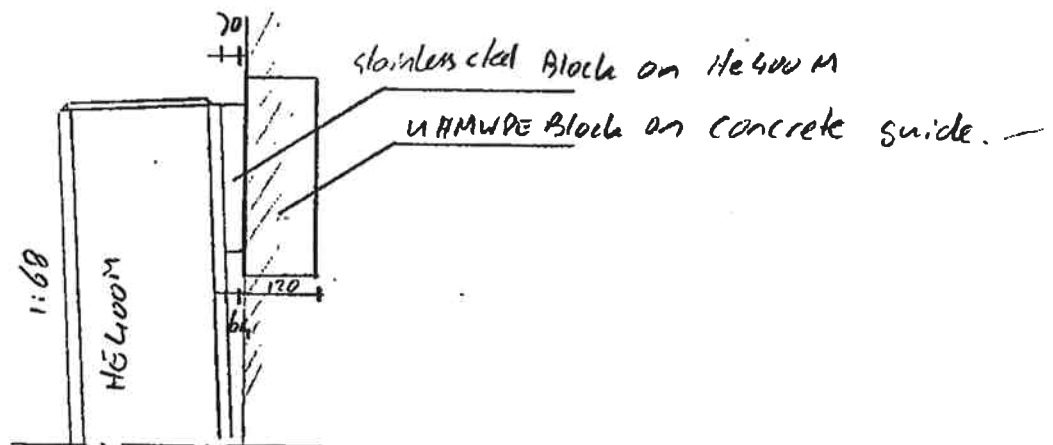 70
stainless steel Block on HE400M
UHMWPE Block on concrete guide.
1:68
HE400M
120
64